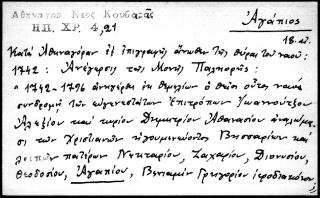 Ἀθηναγόρ. Νέος Κουβαρᾶς
ΗΠ. ΧΡ. 4, 21
Ἀγάπιος
18. αἰ.
Κατὰ Ἀθηναγόραν ἐξ ἐπιγραφῆς ἄνωθεν τῆς θύρας τοῦ ναοῦ:
1742: Ἀνέγερσις τῆς Μονῆς Παληορῆς:
"1742-1796 ἀνηγέρθη ἐκ θεμελίων ὁ θεῖος οὗτος ναὸς
συνδρομῇ τῶν εὐγενεστάτων ἐπιτρόπων Ἰωαννούτζου
Ἀλεξίου καὶ κυρίου Δημητρίου Ἀθανασίου ἀναλώμα-
σι τῶν Χριστιανῶν ἡγουμενεύοντος Βησσαρίων καὶ
λοιπῶν πατέρων Νεκταρίου, Ζαχαρίου, Διονυσίου,
Θεοδοσίου, Ἀγαπίου, Βενιαμὶν Γρηγορίου ἱεροδιακόνου